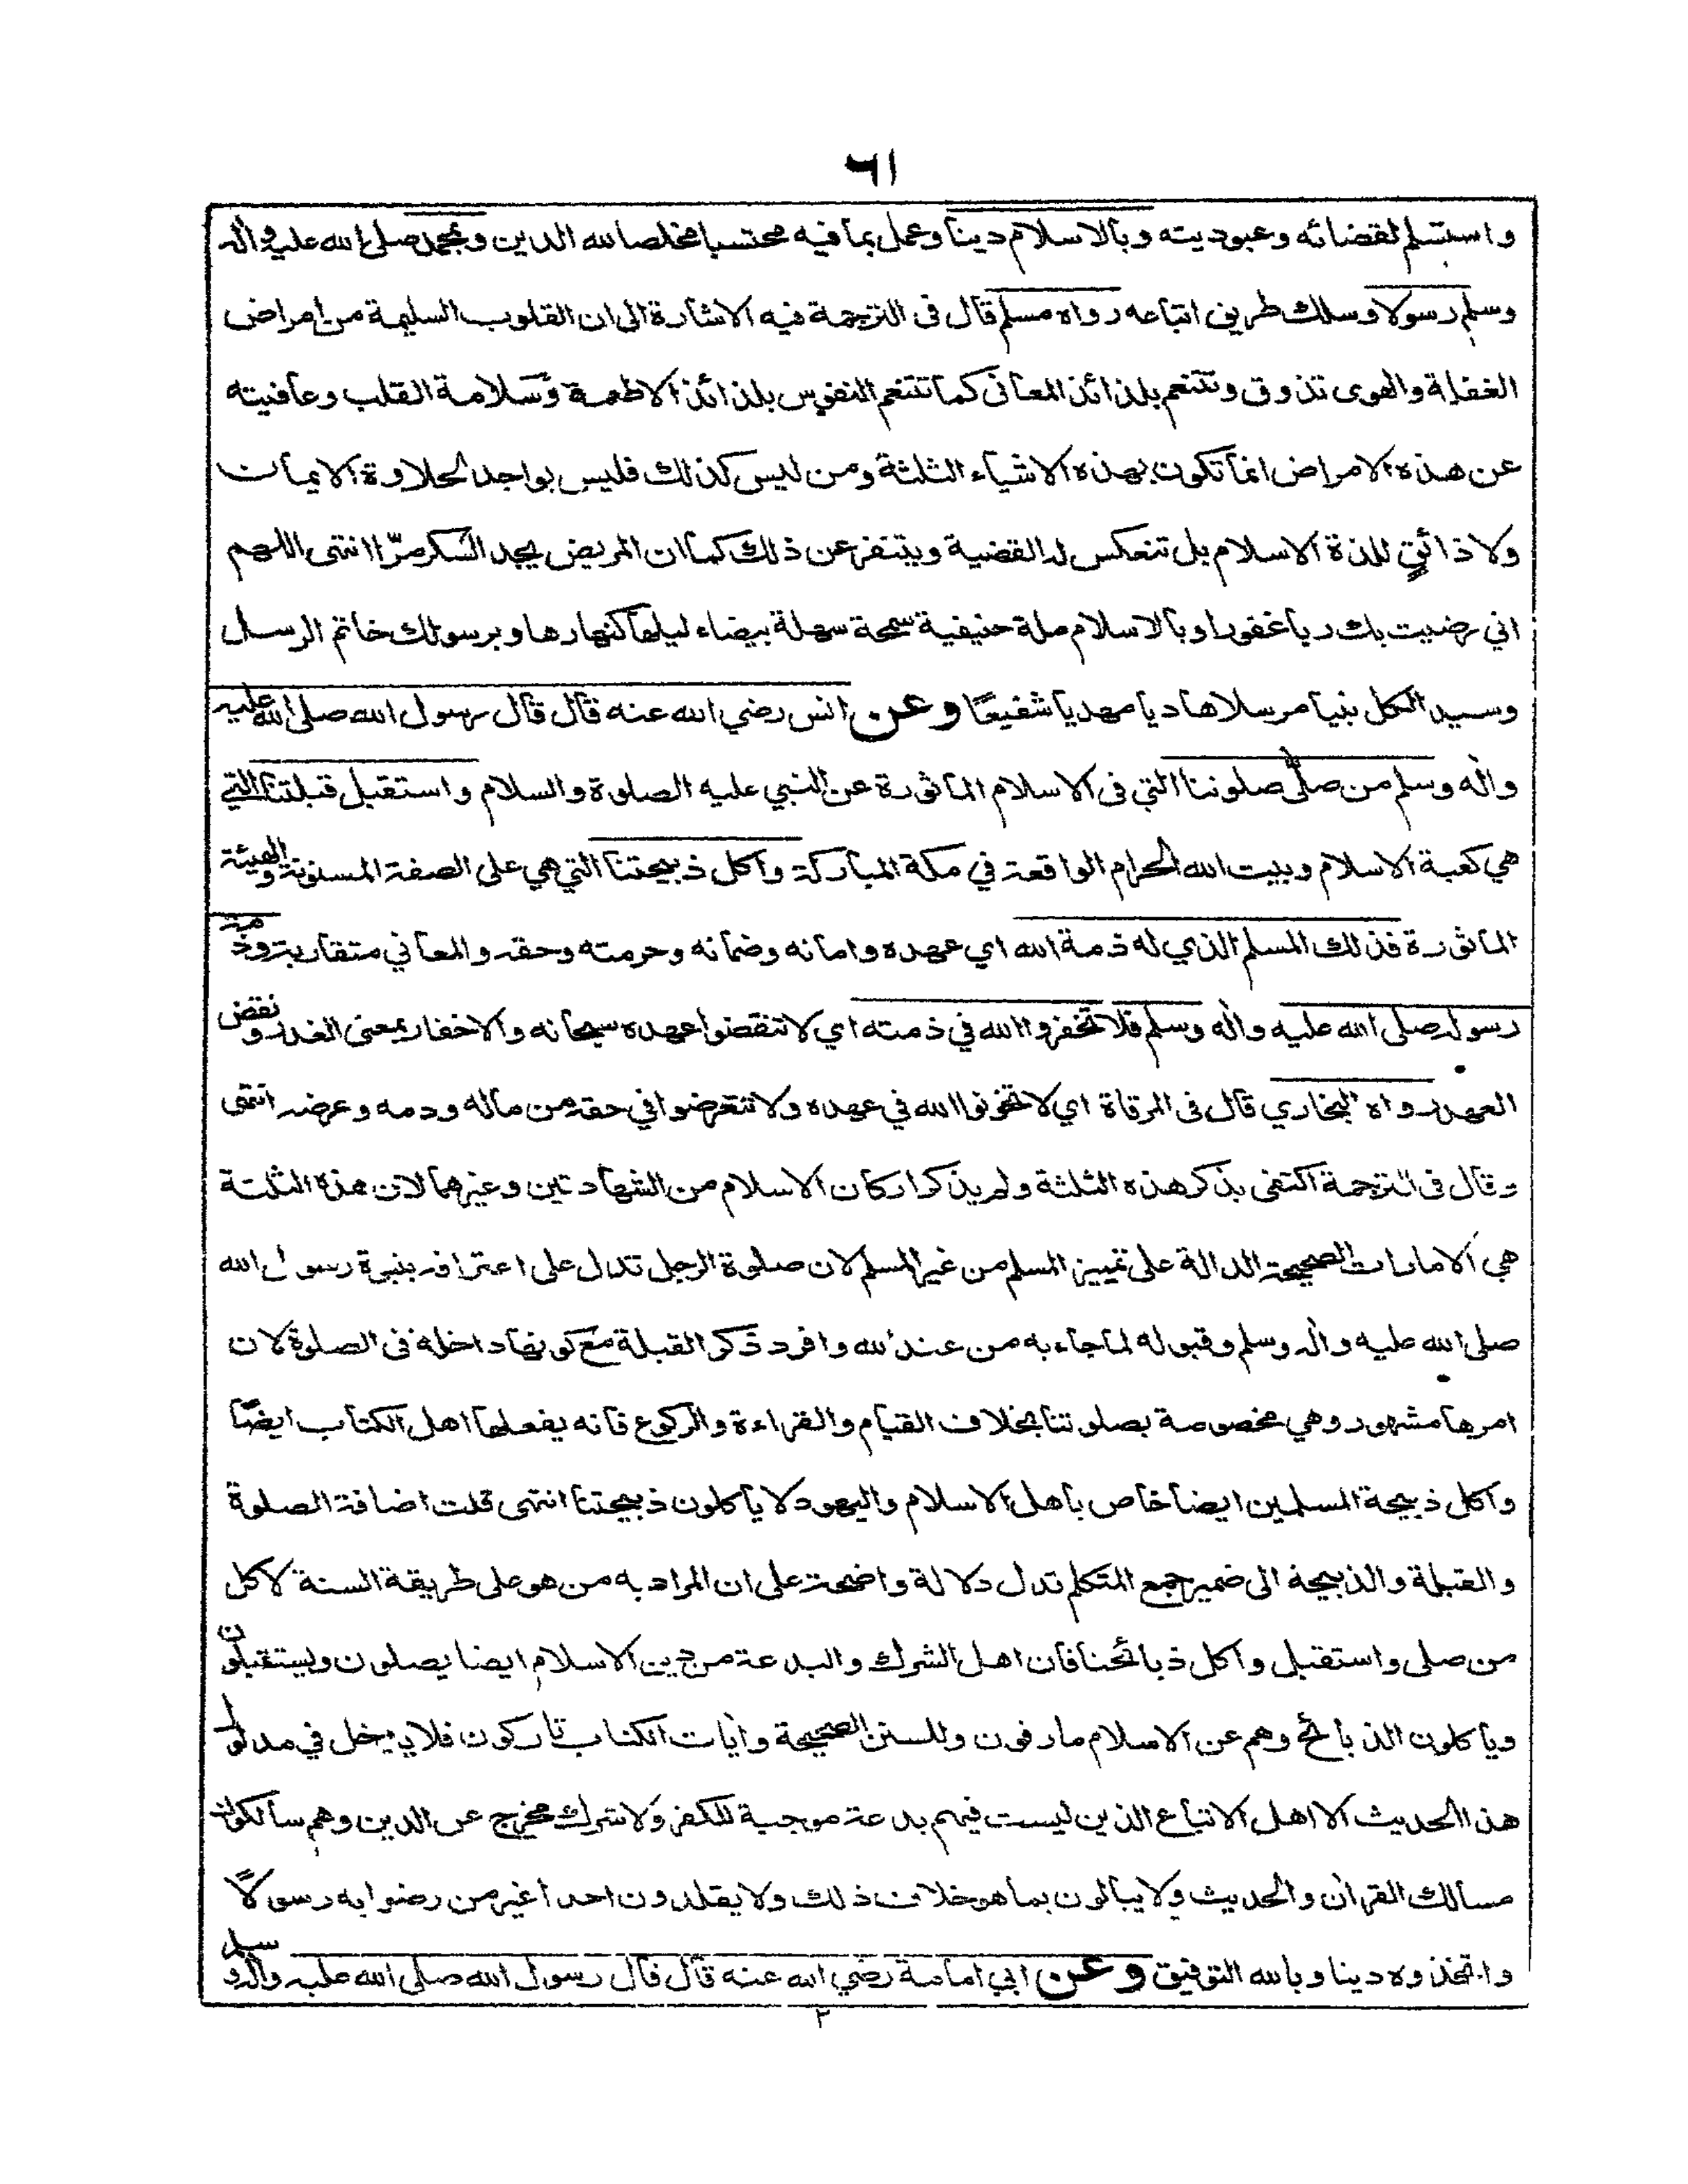 ٦١
واستسلم لقضائه وعبوديته وبالاسلام دينا وعمل بما فيه محتسبا مخلصا لله الدين وبمحمد صلى الله عليه واله
وسلم رسولا وسلك طريق اتباعه رواه مسلم قال فى الترجمة فيه الاشارة الى ان القلوب السليمة من امراض
الغفلة والهوى تذوق وتتنعم بلذائذ المعانى كما تتنعم النفوس بلذائذ الاطعمة وسلامة القلب وعافيته
عن هذه الامراض انما تكون بهذه الاشياء الثلثة ومن ليس كذلك فليس بواجد لحلاوة الايمان
ولا ذائق للذة الاسلام بل تنعكس له القضية ويتنفر عن ذلك كما ان المريض يجد السكر مرّا انتهى اللهم
اني رضيت بك ربا غفورا وبالاسلام ملة حنيفية سمحة سهلة بيضاء ليلها كنهارها وبرسولك خاتم الرسل
وسيد الكل نبيا مرسلا هاديا مهديا شفيعًا وعن انس رضي الله عنه قال قال رسول الله صلى الله عليه
واله وسلم من صلّى صلوتنا التي فى الاسلام الماثورة عن النبي عليه الصلوة والسلام واستقبل قبلتنا التي
هي كعبة الاسلام وبيت الله الحرام الواقعة في مكة المباركة واكل ذبيحتنا التي هي على الصفة المسنونة والهيئة
الماثورة فذلك المسلم الذي له ذمة الله اي عهده وامانه وضمانه وحرمته وحقه والمعاني متقاربة وذمة
رسوله صلى الله عليه واله وسلم فلا تخفروا الله في ذمته اي لا تنقضوا عهده سبحانه والاخفار بمعنى الغدر ونقض
العهد رواه البخاري قال فى المرقاة اي لا تخونوا الله في عهده ولا تتعرضوا في حقه من ماله ودمه وعرضه انتهى
وقال فى الترجمة اكتفى بذكر هذه الثلثة ولم يذكر اركان الاسلام من الشهادتين وغيرهما لان هذه الثلثة
هي الامارات الصحيحة الدالة على تمييز المسلم من غير المسلم لان صلوة الرجل تدل على اعترافه بنبوة رسول الله
صلى الله عليه واله وسلم وقبوله لما جاء به من عند الله وافرد ذكر القبلة مع كونها داخلة فى الصلوة لان
امرها مشهور وهي مخصوصة بصلوتنا بخلاف القيام والقراءة والركوع فانه يفعلها اهل الكتاب ايضًا
واكل ذبيحة المسلمين ايضا خاص باهل الاسلام واليهود لا ياكلون ذبيحتنا انتهى قلت اضافة الصلوة
والقبلة والذبيحة الى ضمير جمع المتكلم تدل دلالة واضحة على ان المراد به من هو على طريقة السنة لا كل
من صلى واستقبل واكل ذبائحنا فان اهل الشرك والبدعة من الاسلام ايضا يصلون ويستقبلون
وياكلون الذبائح وهم عن الاسلام مارقون وللسنن الصحيحة وايات الكتاب تاركون فلا يدخل في مدلول
هذا الحديث الا اهل الاتباع الذين ليست فيهم بدعة موجبة للكفر ولا شرك مخرج عن الدين وهم سالكون
مسالك القران والحديث ولا يبالون بما هو خلاف ذلك ولا يقلدون احدا غير من رضوا به رسولًا
واتخذوه دينا وبالله التوفيق وعن ابي امامة رضي الله عنه قال قال رسول الله صلى الله عليه واله وسلم
٢